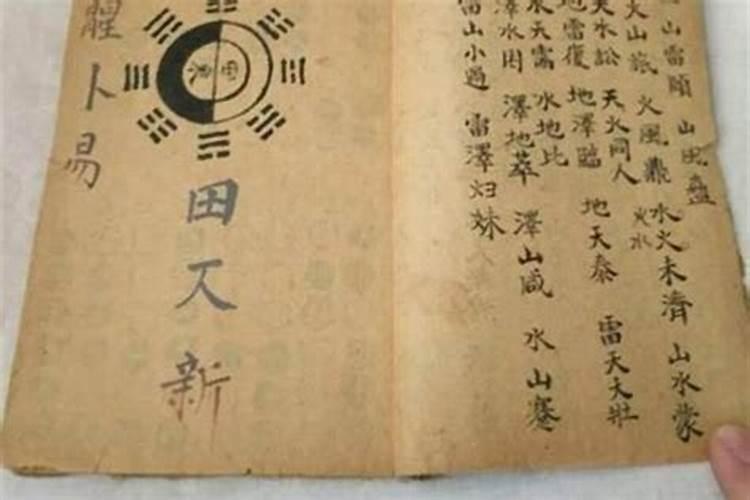 山雷頤 山風蠱
火山旅 火風鼎 水火未濟 山水蒙
火水
天水訟 天火同人
地雷復 地澤臨 地天泰 雷天大壯
水天需 水地比
澤水困 澤地萃 澤山咸 水山蹇
雷山小過 雷澤归妹
田
新
卜易